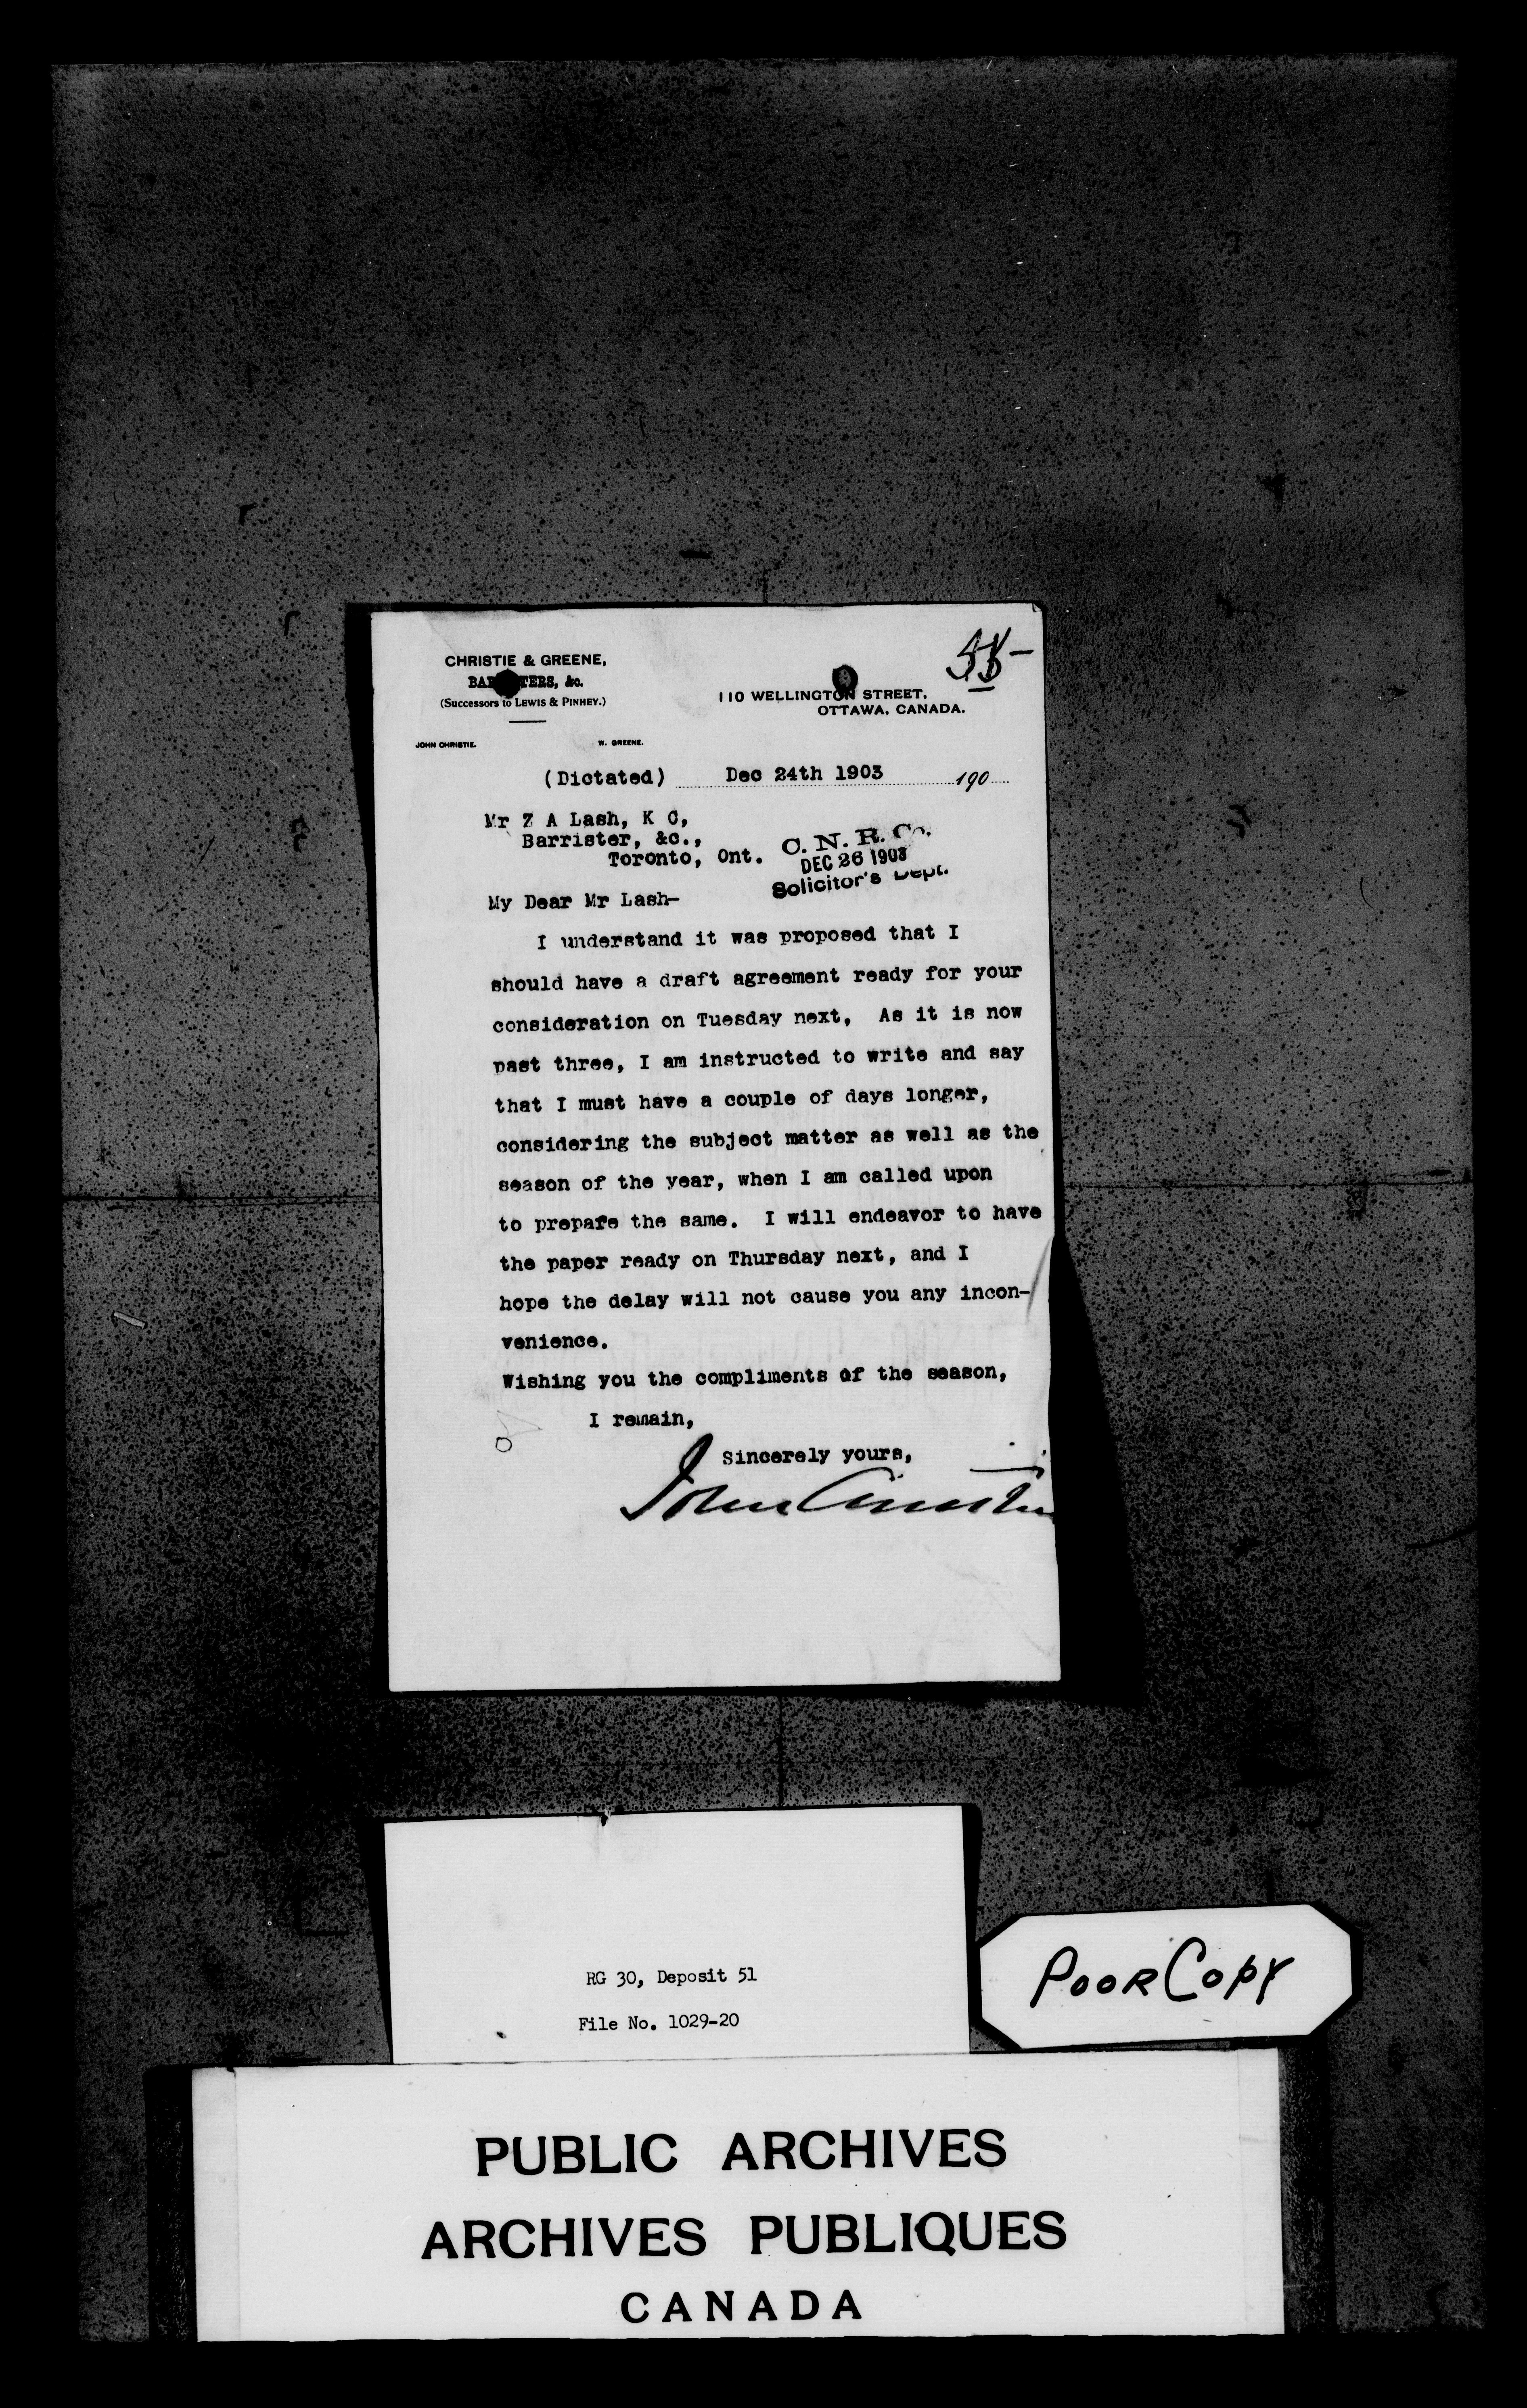 CHRISTIE & GREENE,
BARRISTERS, &c.
(Successors to LEWIS & PINHEY.)
110 WELLINGTON STREET,
OTTAWA, CANADA.
JOHN CHRISTIE.
W. GREENE.
(Dictated) Dec 24th 1903 190
Mr Z A Lash, K C,
Barrister, &c.,
Toronto, Ont.
C. N. R. Co.
DEC 26 1903
Solicitor's Dept.
My Dear Mr Lash-
I understand it was proposed that I
should have a draft agreement ready for your
consideration on Tuesday next, As it is now
past three, I am instructed to write and say
that I must have a couple of days longer,
considering the subject matter as well as the
season of the year, when I am called upon
to prepare the same. I will endeavor to have
the paper ready on Thursday next, and I
hope the delay will not cause you any incon-
venience.
Wishing you the compliments of the season,
I remain,
Sincerely yours,
John Christie
RG 30, Deposit 51
File No. 1029-20
POOR COPY
PUBLIC ARCHIVES
ARCHIVES PUBLIQUES
CANADA